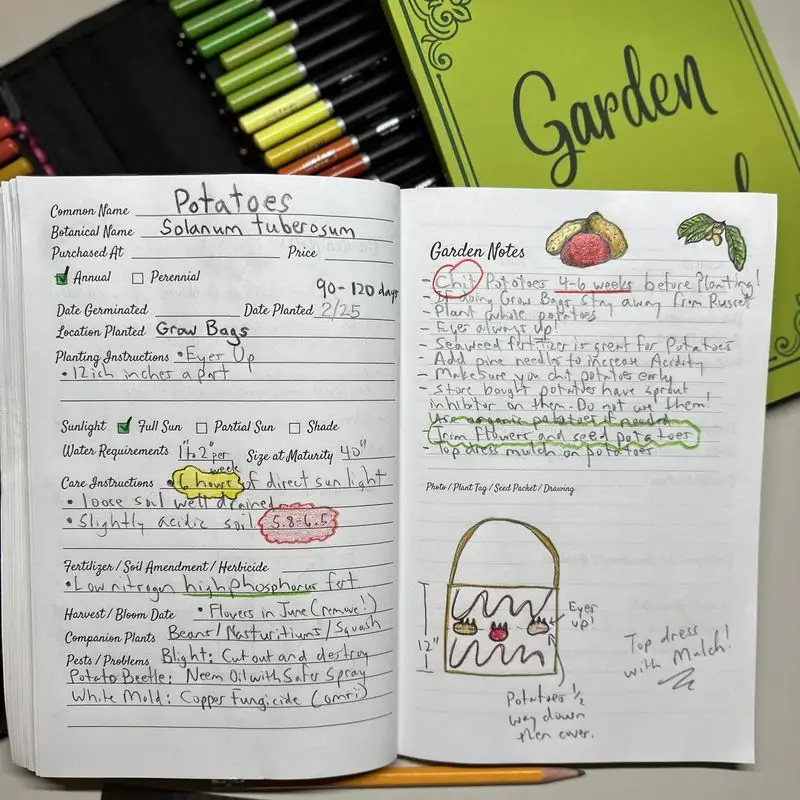 Garden
Common Name Potatoes
Botanical Name Solanum tuberosum
Purchased At Price
Annual Perennial
90-120 days
Date Germinated Date Planted 2/25
Location Planted Grow Bags
Planting Instructions • Eyes Up
• 12ich inches apart
Sunlight Full Sun Partial Sun Shade
Water Requirements 1" to 2" per week Size at Maturity 40"
Care Instructions • 6 hours of direct sun light
• loose soil well drained
• Slightly acidic soil 5.8-6.5
Fertilizer / Soil Amendment / Herbicide
• Low nitrogen high phosphorus fert
Harvest / Bloom Date • Flowers in June (remove!)
Companion Plants Beans/Nasturitiums/Squash
Pests / Problems Blight: Cut out and destroy
Potato Beetle: Neem Oil with Safer Spray
White Mold: Copper Fungicide (omri)
Garden Notes
- Chit Potatoes 4-6 weeks before Planting!
- If doing Grow Bags stay away from Russet
- Plant whole potatoes
- Eyes always up!
- Seaweed fertilizer is great for Potatoes
- Add pine needles to increase Acidity
- Make sure you chit potatoes early
- Store bought potatoes have sprout
inhibitor on them. Do not use them!
Use organic potatoes if needed
Trim flowers and seed potatoes
- Top dress mulch on potatoes
Photo / Plant Tag / Seed Packet / Drawing
12"
Eyes
up!
Potatoes 1/2
way down
then cover.
Top dress
with Mulch!